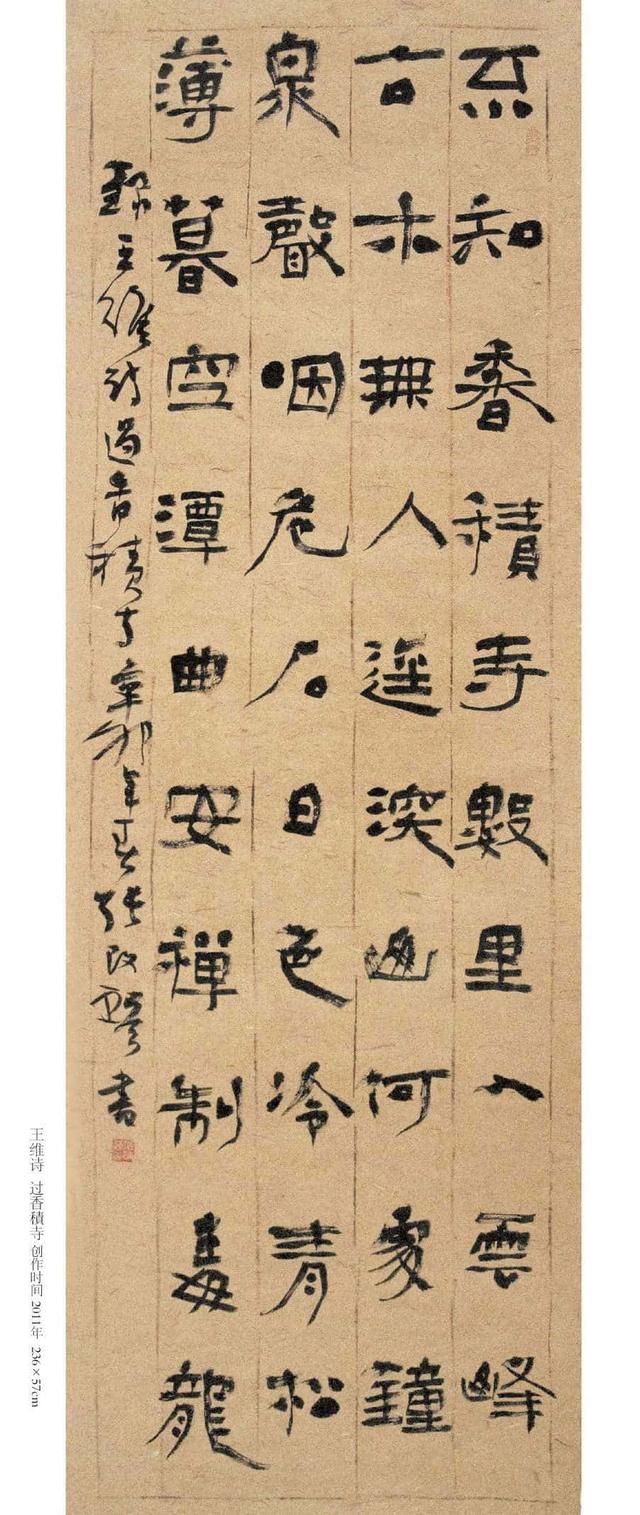 不知香積寺數里入雲峰
古木無人逕深山何處鐘
泉聲咽危石日色冷青松
薄暮空潭曲安禪制毒龍
錄王維詩過香積寺辛卯年春張改琴書
王维诗 过香積寺 创作时间 2011年 236×57cm